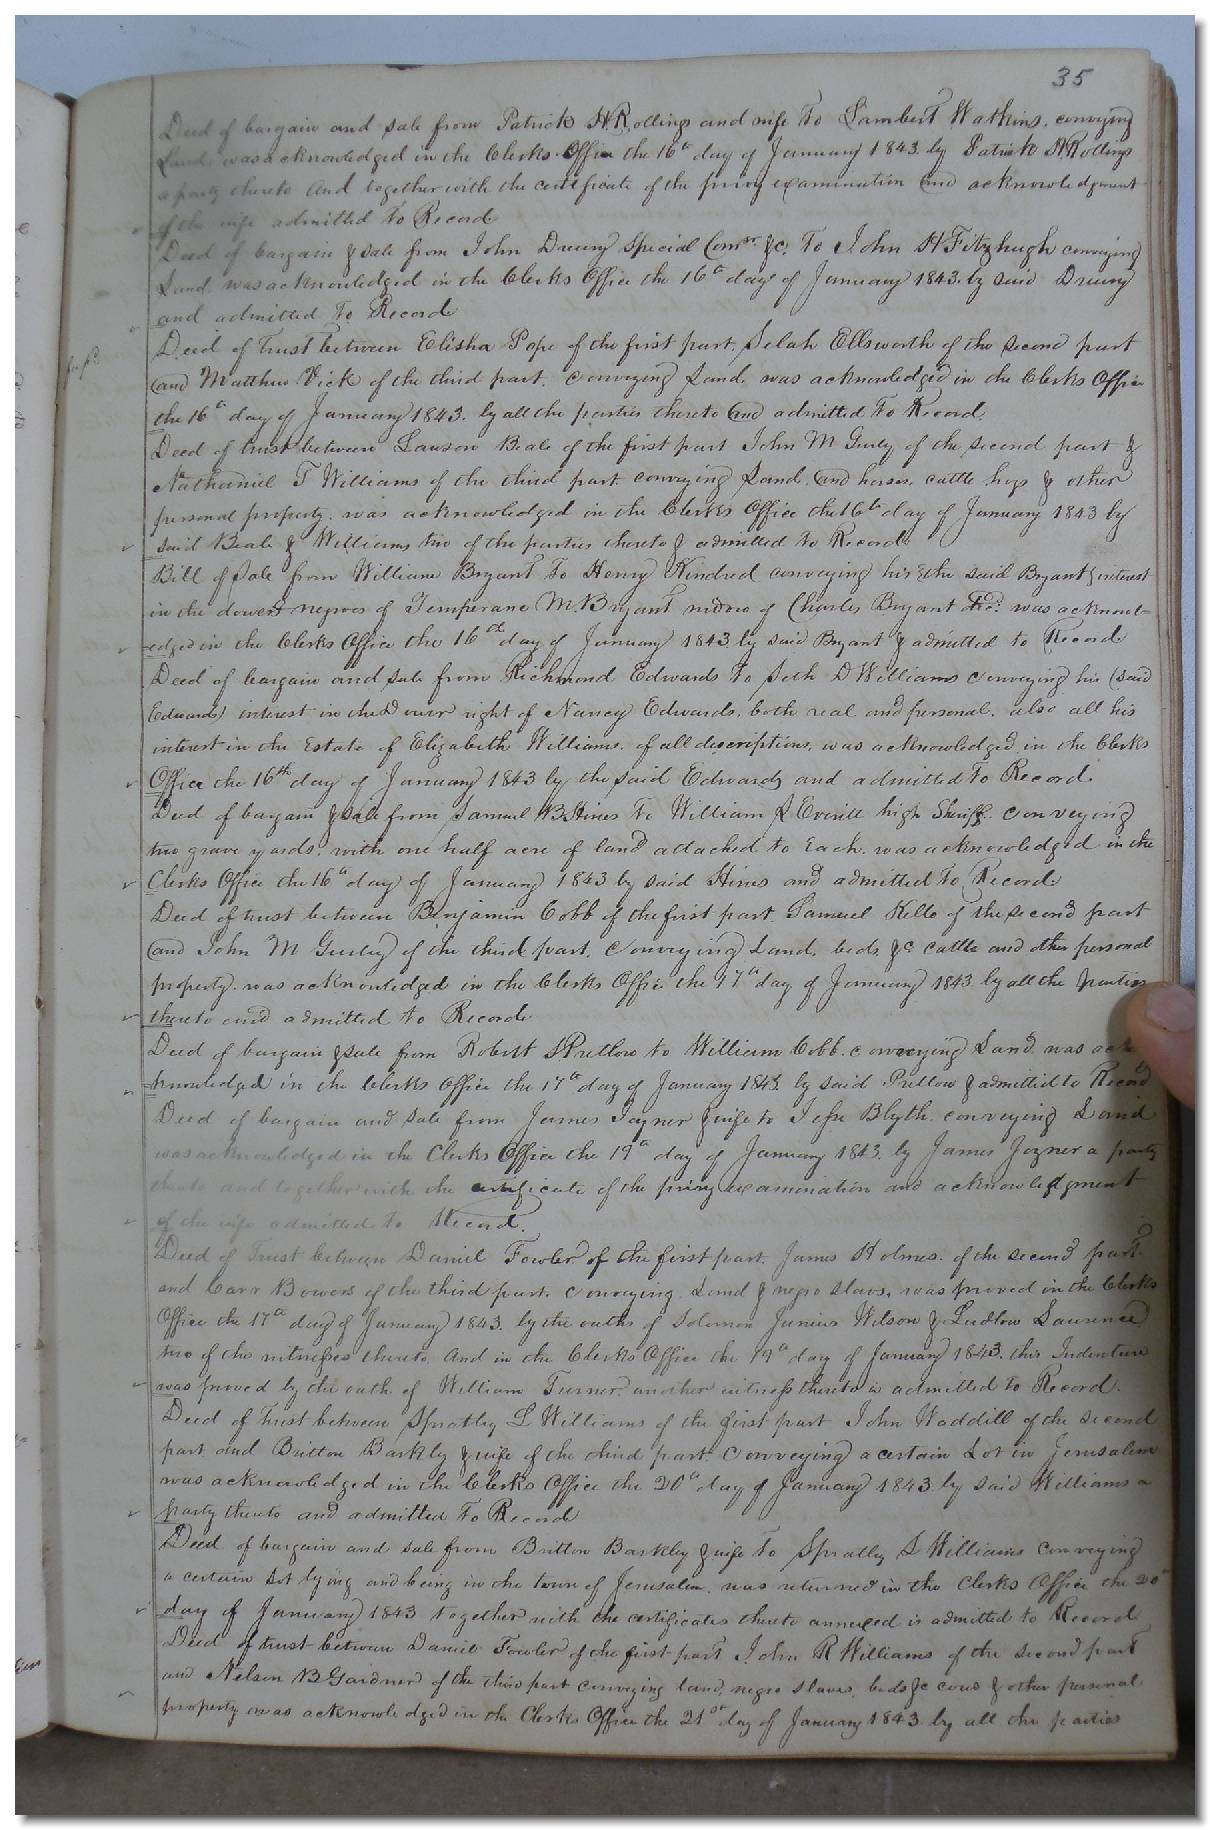 35
Deed of bargain and sale from Patrick H Rollings and wife To Lambert Watkins. conveying
Land, was acknowledged in the Clerks Office the 16th day of January 1843 by Patrick H Rollings
a party thereto and together with the certificate of the privy examination and acknowledgment
of the wife admitted to Record
Deed of bargain & sale from John Drury Special Comr. &c. To John H Fitzhugh conveying
Land. was acknowledged in the Clerks Office the 16th day of January 1843. by said Drury
and admitted To Record
Deed of Trust between Elisha Pope of the first part, Selah Ellsworth of the second part
and Matthew Vick of the third part. conveying Land, was acknowledged in the Clerks Office
the 16th day of January 1843. by all the parties thereto and admitted To Record.
Deed of trust between Lawson Beale of the first part John M Gurley of the second part &
Nathaniel T Williams of the third part conveying Land. and horses, cattle hogs & other
personal property. was acknowledged in the Clerks Office the 16th day of January 1843 by
said Beale & Williams two of the parties thereto & admitted to Record
Bill of Sale from William Bryant To Henry Kindred conveying his (the said Bryant) interest
in the dower negroes of Temperane M Bryant widow of Charles Bryant decd. was acknowl=
edged in the Clerks Office the 16th day of January 1843 by said Bryant & admitted to Record
Deed of bargain and sale from Richmond Edwards To Seth D Williams conveying his (said
Edwards) interest in the dower right of Nancy Edwards. both real and personal. also all his
interest in the Estate of Elizabeth Williams. of all descriptions, was acknowledged in the Clerks
Office the 16th day of January 1843 by the said Edwards and admitted To Record.
Deed of bargain & sale from Samuel B Hines To William S Everitt high Sheriff. conveying
two grave yards. with one half acre of land attached to Each. was acknowledged in the
Clerks Office the 16th day of January 1843 by said Hines and admitted To Record
Deed of trust between Benjamin Cobb of the first part. Samuel Kello of the second part
and John M Gurley of the third part. conveying Land, beds, &c cattle and other personal
property. was acknowledged in the Clerks Office the 17th day of January 1843 by all the parties
thereto and admitted to Record
Deed of bargain & sale from Robert S Pretlow to William Cobb. conveying Land. was ack
knowledged in the Clerks Office the 17th day of January 1843. by said Pretlow & admitted to Record
Deed of bargain and sale from James Joyner & wife to Jesse Blyth. conveying Land
was acknowledged in the Clerks Office the 19th day of January 1843. by James Joyner a party
thereto and together with the certificate of the privy examination and acknowledgment
of the wife admitted to Record.
Deed of Trust between Daniel Fowler of the first part, James Holmes. of the second part
and Carr Bowers of the third part. conveying Land & negro slaves, was proved in the Clerks
Office the 17th day of January 1843. by the oaths of Solomon Junius Wilson & Ludlow Laurence
two of the witnesses thereto. And in the Clerks Office the 19th day of January 1843. this Indenture
was proved by the oath of William Turner another witness thereto is admitted to Record.
Deed of Trust between Spratley L Williams of the first part John Waddill of the second
part and Britton Barkley & wife of the third part. Conveying a certain Lot in Jerusalem
was acknowledged in the Clerks Office the 20th day of January 1843. by said Williams a
party thereto and admitted To Record
Deed of bargain and sale from Britton Barkley & wife To Spratley L Williams conveying
a certain Lot lying and being in the town of Jerusalem. was returned in the Clerks Office the 20th
day of January 1843 together with the certificates thereto annexed is admitted to Record
Deed of trust between Daniel Fowler of the first part John R Williams of the second part
and Nelson B Gardner of the third part conveying land, negro slaves, beds &c cows & other personal
property was acknowledged in the Clerks Office the 21st day of January 1843 by all the parties